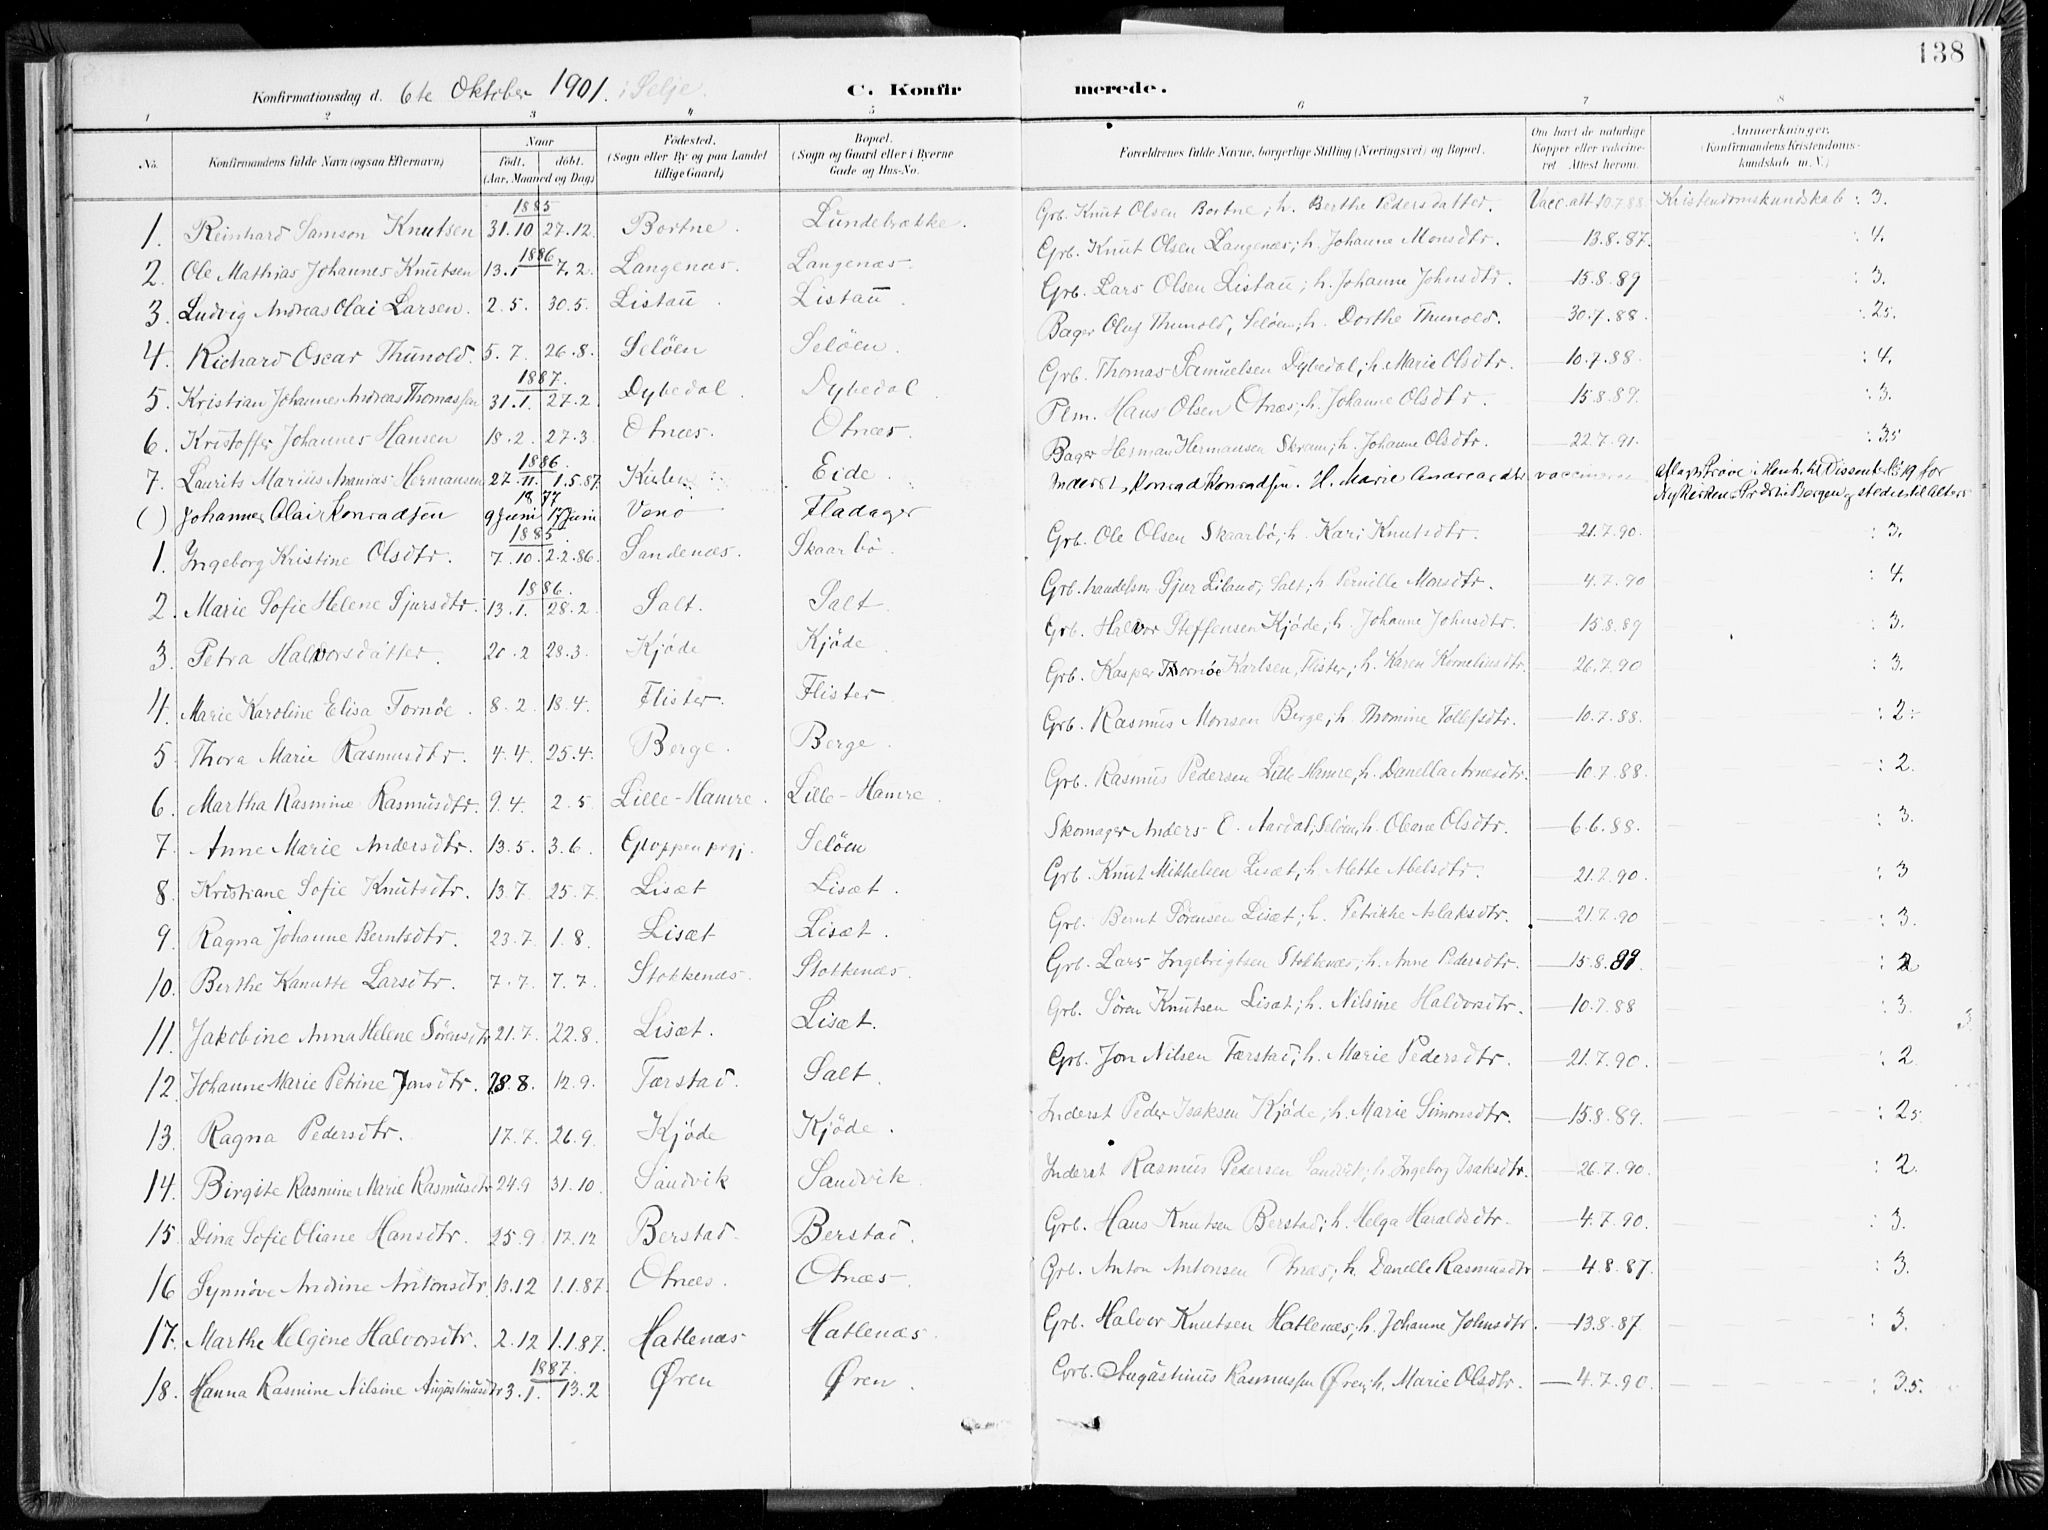 138
Konfirmationsdag d. 6te Oktober 1901. i Selje. C. Konfirmerede.
1 2 3 4 5 6 7 8
No. Konfirmandens fulde Navn (ogsaa Efternavn) Naar født. døbt. (Aar, Maaned og Dag) Fødested. (Sogn eller By og paa Landet tillige Gaard) Bopæl. (Sogn og Gaard eller i Byerne Gade og Hus-No. Forældrenes fulde Navne, borgerlige Stilling (Næringsvei) og Bopæl. Om havt de naturlige Kopper eller vaccineret Attest herom. Anmærkninger. (Konfirmandens Kristendomskundskab m. V.)
1885
1. Reinhard Samson Knutsen 31.10 27.12. Bortne. Lundebrække. Grb. Knut Olsen Bortne; h. Berthe Pedersdatter. Vacc.att. 10.7.88 Kristendomskundskab : 3.
1886
2. Ole Mathias Johannes Knutsen 13.1 7.2. Langenæs. Langenæs. Grb. Knut Olsen Langenæs; h. Johanne Monsdtr. — 13.8.87. : 4.
3. Ludvig Andreas Olai Larsen. 2.5. 30.5. Listau. Listau. Grb. Lars Olsen Listau; h. Johanne Johnsdtr. — 15.8.89 : 3.
4. Richard Oscar Thunold. 5.7. 26.8. Seløen Seløen. Bager Oluf Thunold, Seløen; h. Dorthe Thunold. — 30.7.88. : 25.
1887.
5. Kristian Johannes Andreas Thomassen 31.1. 27.2 Dybedal. Dybedal. Grb. Thomas Samuelsen Dybedal; h. Marie Olsdtr. — 10.7.88. : 4.
6. Kristoffer Johannes Hansen 18.2. 27.3. Otnæs. Otnæs. Plm. Hans Olsen Otnæs; h. Johanne Olsdtr. — 15.8.89. : 3.
1886.
7. Laurits Marius Ananias Hermansen 27.11. 1.5.87. Eide. Bager Herman Hermansen Skram; h. Johanne Olsdtr. — 22.7.91. : 35
1877
( ) Johannes Olai Konradsen 9 Juni 17 Juni Fladager Inderst, Konrad Konradsen. H. Marie
1885.
1. Ingeborg Kristine Olsdtr. 7.10. 2.2.86. Sandenæs. Skaarbø. Grb. Ole Olsen Skaarbø; h. Kari Knutsdtr. — 21.7.90. : 3.
1886.
2. Marie Sofie Helene Sjursdtr. 13.1. 28.2. Salt. Salt. Grb. handelsm Sjur Liland, Salt; h. Pernille Monsdtr. — 4.7.90 : 4.
3. Petra Halvorsdatter. 20.2 28.3. Kjøde Kjøde. Grb. Halvor Steffensen Kjøde; h. Johanne Johnsdtr. — 15.8.89 : 3.
4. Marie Karoline Elisa Tornøe. 8.2. 18.4. Flister. Flister. Grb. Kasper Tornøe Karlsen, Flister; h. Karen Korneliusdtr. — 26.7.90 : 3.
5. Thora Marie Rasmusdtr. 4.4. 25.4. Berge. Berge. Grb. Rasmus Monsen Berge; h. Thomine Tollefsdtr. — 10.7.88. : 2.
6. Martha Rasmine Rasmusdtr. 9.4. 2.5. Lille-Hamre. Lille-Hamre. Grb. Rasmus Pedersen Lille Hamre, h. Danella Arnesdtr. — 10.7.88. : 2.
7. Anne Marie Andersdtr. 13.5. 3.6. Gloppen prgj. Seløen Skomager Anders O. Aardal, Seløen; h. Oleane Olsdtr. — 6.6.88. : 3.
8. Kristiane Sofie Knutsdtr. 13.7. 25.7. Lisæt Lisæt. Grb. Knut Mikkelsen Lisæt; h. Mette Abelsdtr. — 21.7.90. : 3
9. Ragna Johanne Berntsdtr. 23.7. 1.8. Lisæt Lisæt. Grb. Bernt Sørensen Lisæt; h. Petrikke Aslaksdtr. — 21.7.90 : 3.
10. Berthe Kanutte Larsdtr. 7.7. 7.7. Stokkenæs. Stokkenæs. Grb. Lars Ingebrigtsen Stokkenæs; h. Anne Pedersdtr. — 15.8.89. : 2
11. Jakobine Anna Helene Sørensdtr 21.7. 22.8. Lisæt. Lisæt. Grb. Søren Knutsen Lisæt; h. Nilsine Halvorsdtr. — 10.7.88 : 3.
12. Johanne Marie Petrine Jonsdtr. 28.8. 12.9. Tærstad. Salt. Grb. Jon Nilsen Tærstad; h. Marie Pedersdtr. — 21.7.90. : 2
13. Ragna Pedersdtr. 17.7. 26.9. Kjøde Kjøde. Inderst Peder Isaksen Kjøde, h. Marie Simonsdtr. — 15.8.89. : 25.
14. Birgite Rasmine Marie Rasmusdtr 24.9 31.10. Sandvik Sandvik. Inderst Rasmus Pedersen Sandvik; h. Ingeborg Isaksdtr. — 26.7.90. : 2.
15. Dina Sofie Oliane Hansdtr. 25.9. 12.12 Berstad. Berstad. Grb. Hans Knutsen Berstad; h. Helga Haraldsdtr. — 4.7.90. : 3.
16. Synnøve Andrine Antonsdtr. 13.12 1.1.87. Otnæs. Otnæs. Grb. Anton Antonsen Otnæs; h. Danelle Rasmusdtr — 4.8.87. : 3.
17. Marthe Helgine Halvorsdtr. 2.12 1.1.87. Hatlenæs Hatlenæs. Grb. Halvor Knutsen Hatlenæs; h. Johanne Johnsdtr. — 13.8.87. : 3.
1887.
18. Hanna Rasmine Nilsine Augustinusdtr 3.1. 13.2 Øren Øren. Grb. Augustinus Rasmussen Øren; h. Marie Olsdtr. — 4.7.90. : 3.5.